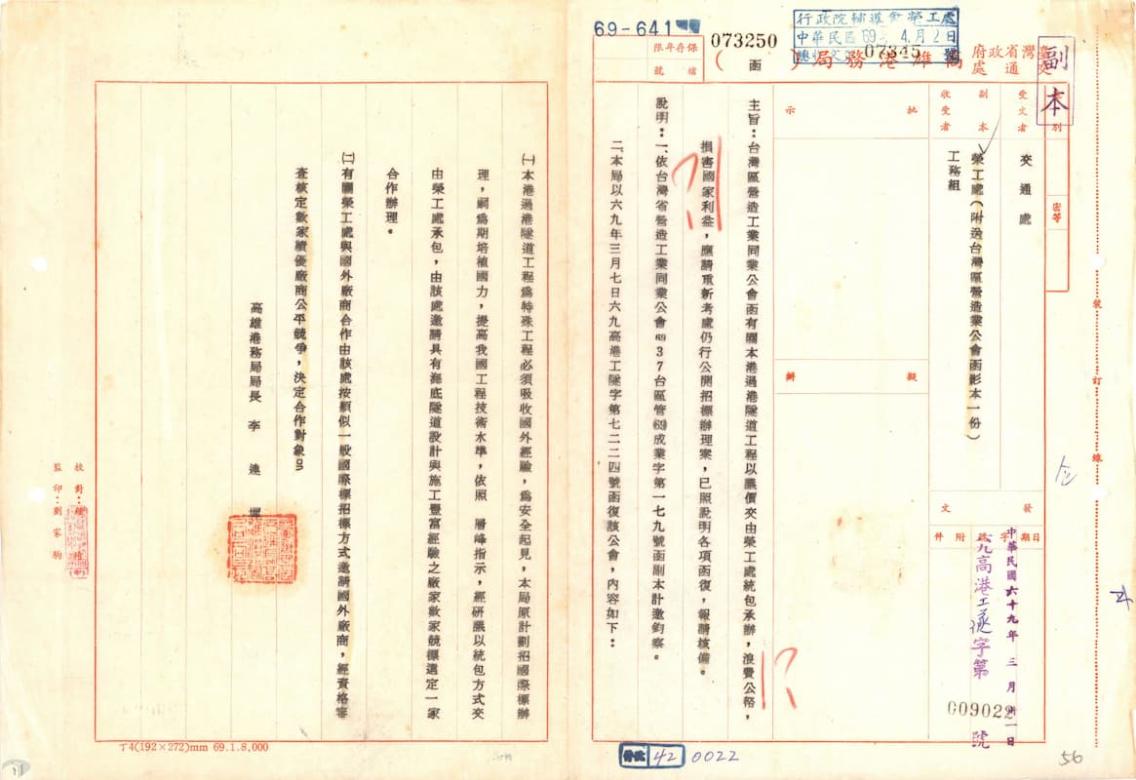 副本
台灣省政府交通處高雄港務局（函）
行政院輔導會榮工處
中華民國69年4月2日
總收文 07345 號
69-641
073250
保存年限
檔號
別
密等
受文者
交通處
副本收受者
榮工處（附送台灣區營造業公會函影本一份）
工務組
發文
日期
字號
附件
中華民國六十九年三月卅一日
六九高港工隧字第
009022
號
批示
擬辦
主旨：台灣區營造工業同業公會函有關本港過港隧道工程以議價交由榮工處統包承辦，浪費公帑，
損害國家利益，應請重新考慮仍行公開招標辦理案，已照說明各項函復，報請核備。
說明：一、依台灣省營造工業同業公會(69)37台區管(69)成業字第一七九號函副本計邀鈞察。
二、本局以六九年三月七日六九高港工隧字第七二二四號函復該公會，內容如下：
㈠本港過港隧道工程為特殊工程必須吸收國外經驗，為安全起見，本局原計劃招國際標辦
理，嗣為期培植國力，提高我國工程技術水準，依照　層峰指示，經研議以統包方式交
由榮工處承包，由該處邀請具有海底隧道設計與施工豐富經驗之廠家數家競標選定一家
合作辦理。
㈡有關榮工處與國外廠商合作由該處按類似一般國際標招標方式邀請國外廠商，經資格審
查核定數家績優廠商公平競爭，決定合作對象。
高雄港務局局長　李連墀
校對：
監印：劉家駒
裝訂線
丁4(192×272)mm 69.1.8,000
42
0022
56